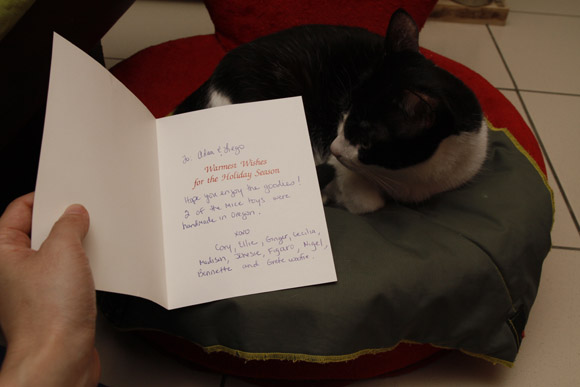 To: Alex & Diego
Warmest Wishes
for the Holiday Season
Hope you enjoy the goodies!
2 of the mice toys were
handmade in Oregon.
xoxo
Cory, Ellie, Ginger, Cecilia,
Madison, Jessie, Figaro, Nigel,
Bennette and